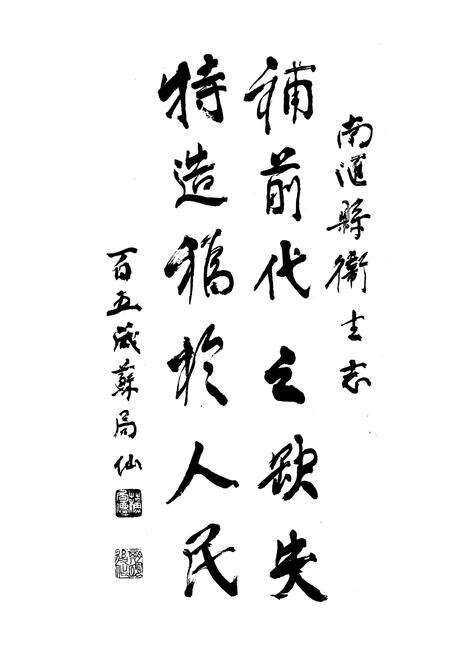 南汇縣衛生志
補前代之缺失
特造福於人民
百五歲蘇局仙